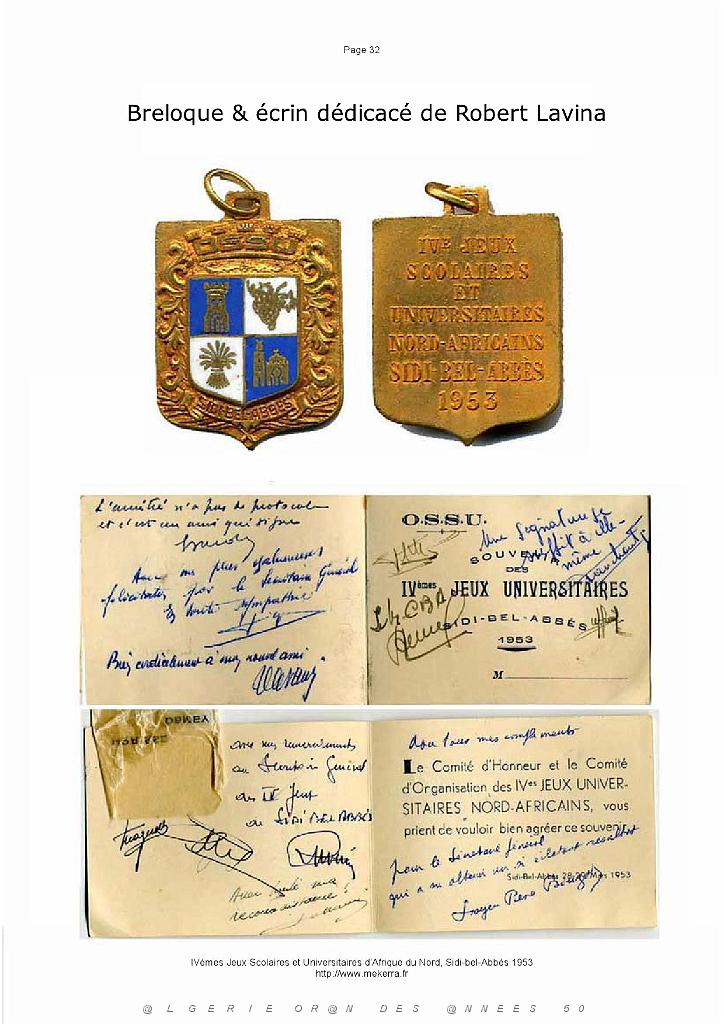 Page 32
Breloque & écrin dédicacé de Robert Lavina
OSSU
SIDI-BEL-ABBÈS
IVE JEUX
SCOLAIRES
ET
UNIVERSITAIRES
NORD-AFRICAINS
SIDI-BEL-ABBÈS
1953
L'amitié n'a pas de protocole
et c'est un ami qui signe
Avec mes plus chaleureuses
félicitations pour le Secrétaire Général
et toute sympathie
Bien cordialement à mon nouvel ami.
O.S.S.U.
SOUVENIR
DES
IVèmes JEUX UNIVERSITAIRES
SIDI-BEL-ABBÈS
1953
M
Une signature se
suffit à elle-
même
avec mes remerciements
au Secrétaire Général
des IV Jeux
de SIDI BEL ABBÈS
Avec toute ma
reconnaissance !
Avec tous mes compliments
Le Comité d'Honneur et le Comité
d'Organisation des IVes JEUX UNIVER-
SITAIRES NORD-AFRICAINS, vous
prient de vouloir bien agréer ce souvenir.
Sidi-Bel-Abbès 28-29 Mars 1953
pour le Secrétaire général
qui a su obtenir un si éclatant résultat
IVèmes Jeux Scolaires et Universitaires d'Afrique du Nord, Sidi-bel-Abbès 1953
http://www.mekerra.fr
@ L G E R I E O R @ N D E S @ N N E E S 5 0